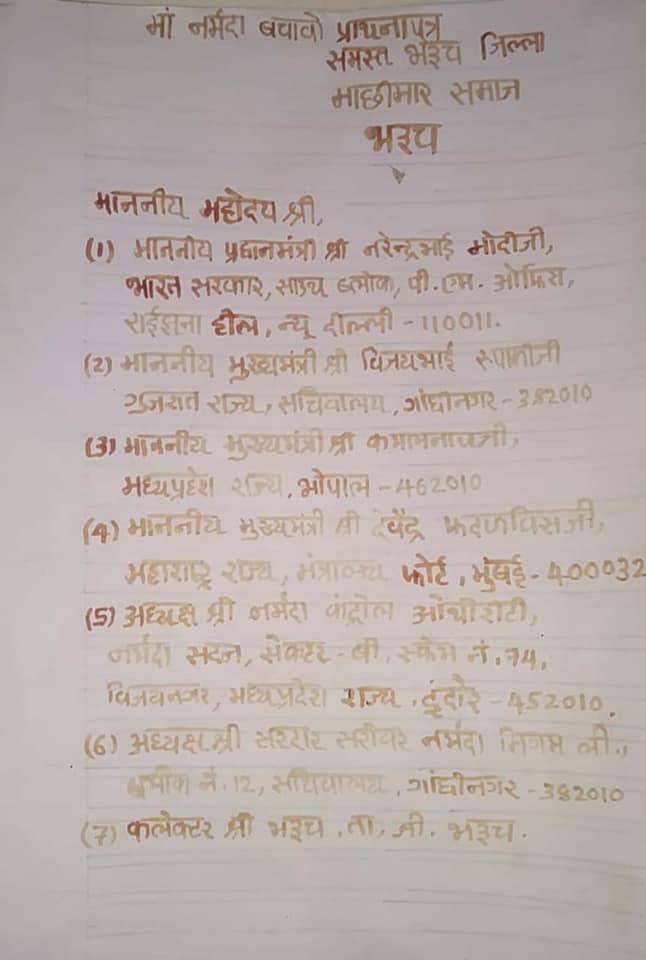 मां नर्मदा बचावो प्राथनापत्र
समस्त भरूच जिल्ला
माछीमार समाज
भरूच
माननीय महोदय श्री,
(1) माननीय प्रधानमंत्री श्री नरेन्द्रभाई मोदीजी,
भारत सरकार, साउथ ब्लोक, पी.एम. ओफिस,
राईझना हील, न्यू दील्ली - 110011.
(2) माननीय मुख्यमंत्री श्री विजयभाई रूपाणीजी
गुजरात राज्य, सचिवालय, गांधीनगर - 382010
(3) माननीय मुख्यमंत्री श्री कमलनाथजी,
मध्यप्रदेश राज्य, भोपाल - 462010
(4) माननीय मुख्यमंत्री श्री देवेंद्र फडणविसजी,
महाराष्ट्र राज्य, मंत्रालय फोर्ट, मुंबई - 400032
(5) अध्यक्ष श्री नर्मदा कंट्रोल ओथोरोटी,
नर्मदा सदन, सेक्टर - बी, स्कीम नं. 74,
विजयनगर, मध्यप्रदेश राज्य, इंदोर - 452010.
(6) अध्यक्ष श्री सरदार सरोवर नर्मदा निगम ली.,
ब्लोक नं. 12, सचिवालय, गांधीनगर - 382010
(7) कलेक्टर श्री भरूच, ता, जी. भरूच.